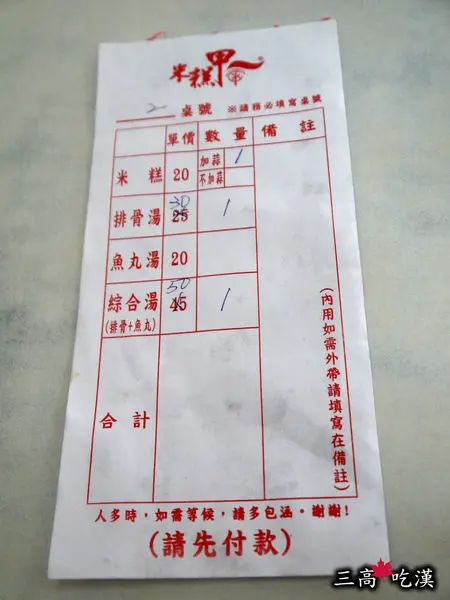 米糕甲
2 桌號 ※請務必填寫桌號
單價 數量 備註
米糕 20 加蒜 1
不加蒜
排骨湯 25 30 1
魚丸湯 20
綜合湯 45 50 1
(排骨+魚丸)
合計
(內用如需外帶請填寫在備註)
人多時，如需等候，請多包涵。謝謝!
(請先付款)
三高吃漢